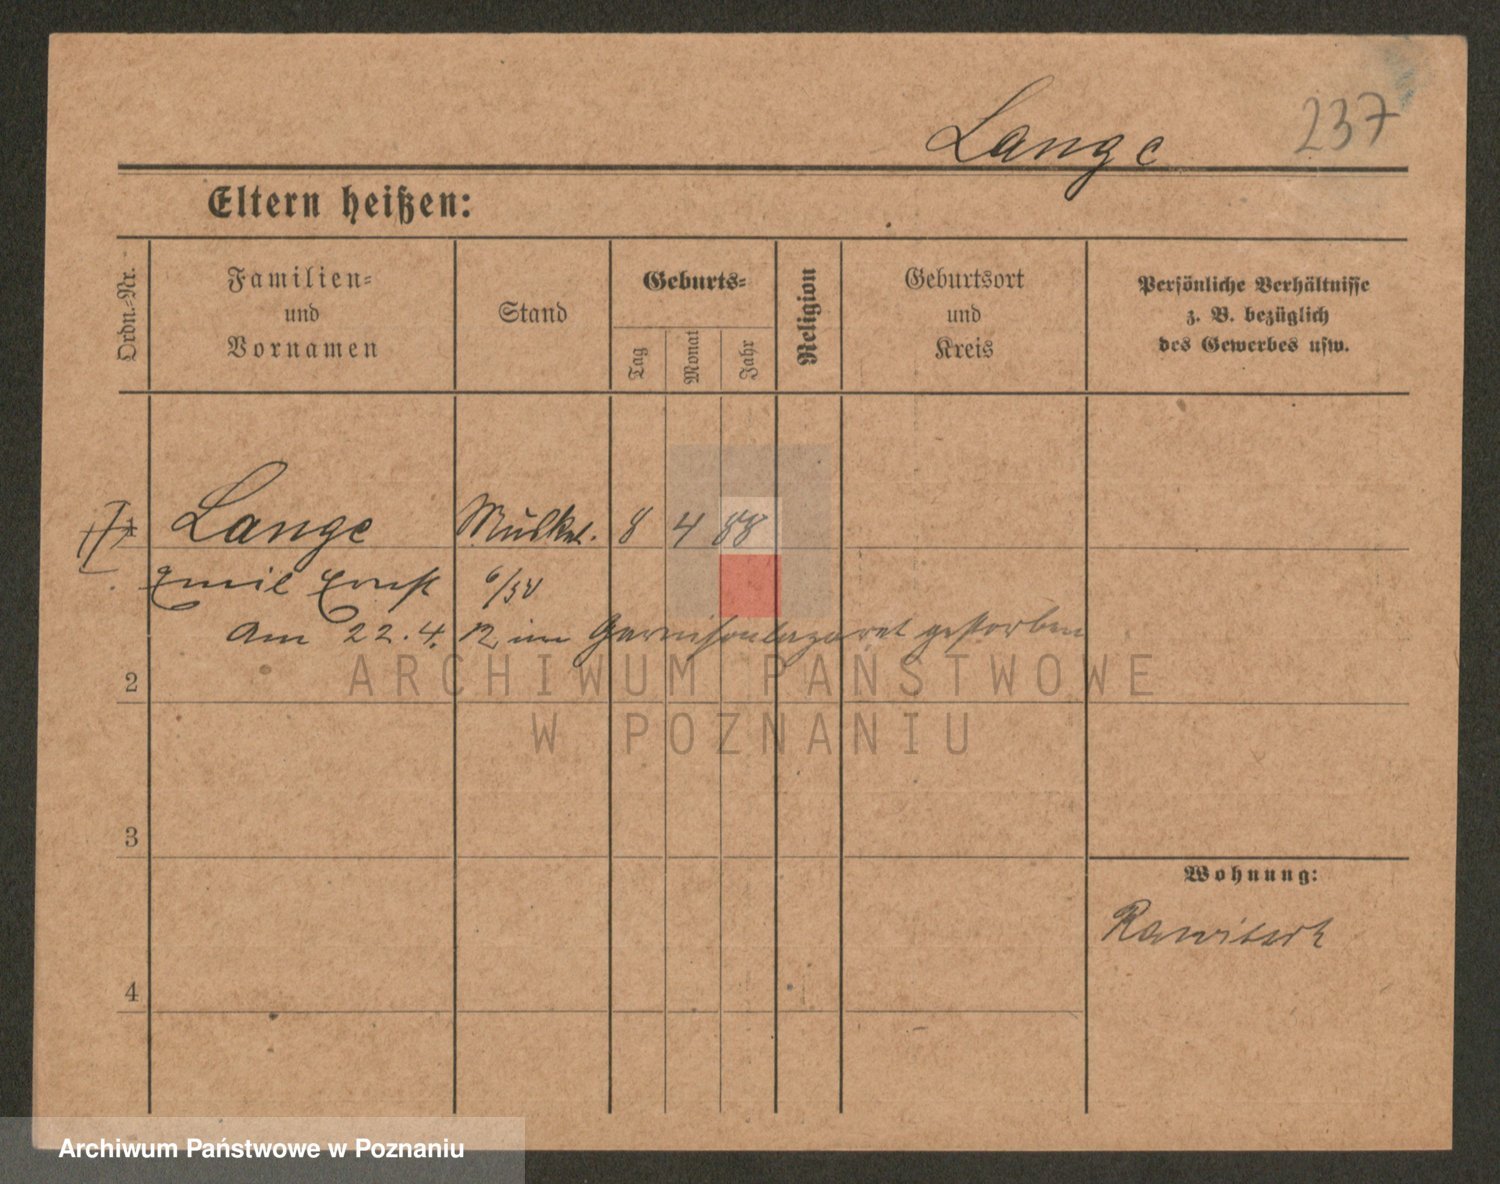 Lange 237
Eltern heißen:
Ordn.-Nr.
Familien-
und
Vornamen
Stand
Geburts-
Tag
Monat
Jahr
Religion
Geburtsort
und
Kreis
Persönliche Verhältnisse
z. B. bezüglich
des Gewerbes usw.
1 Lange Musket. 8 4 88
Emil Ernst 6/54
Am 22.4.12 im Garnisonlazaret gestorben
2
ARCHIWUM PAŃSTWOWE
W POZNANIU
3
Wohnung:
Rawitsch
4
Archiwum Państwowe w Poznaniu